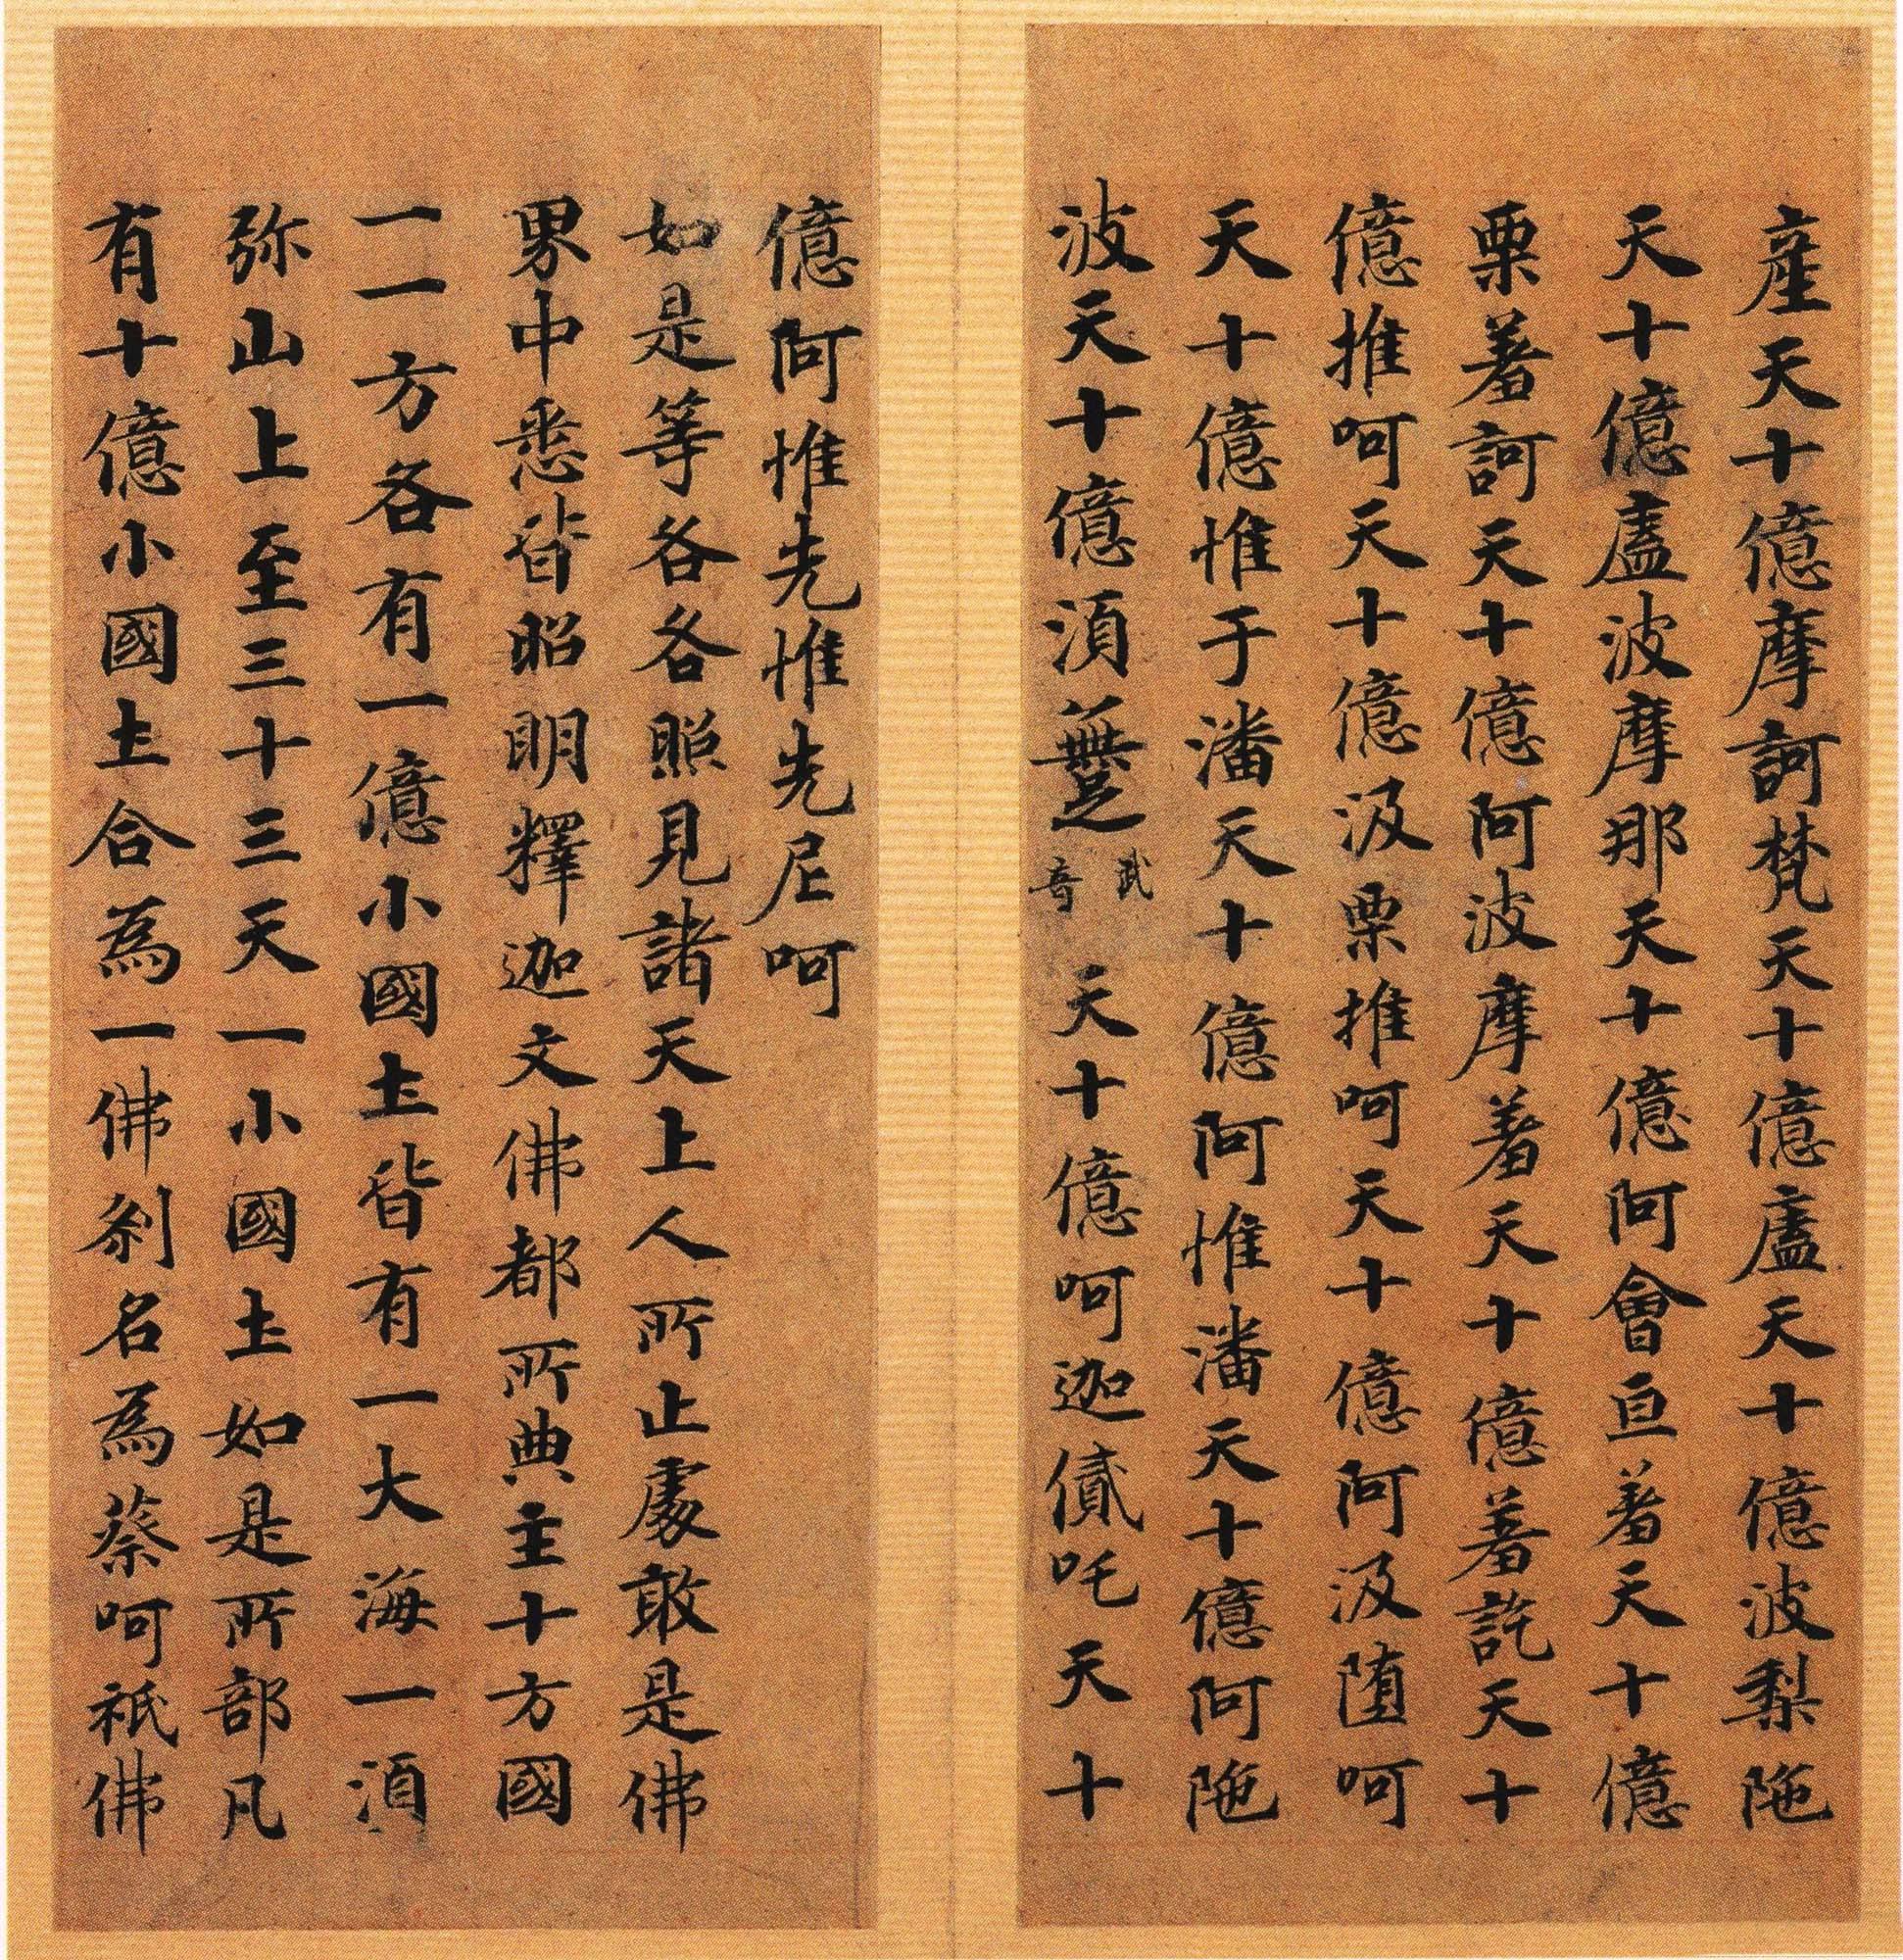 産天十億摩訶梵天十億廬天十億波梨陁
天十億廬波摩那天十億阿會亘著天十億
栗著訶天十億阿波摩著天十億著詑天十
億推呵天十億汲栗推呵天十億阿汲墮呵
天十億惟于潘天十億阿惟潘天十億阿陁
波天十億須
武
帝
天十億呵迦貳吒天十
億阿惟先惟先尼呵
如是等各各照見諸天上人所止處敢是佛
界中悉皆昭明釋迦文佛都所典主十方國
一一方各有一億小國土皆有一大海一須
弥山上至三十三天一小國土如是所部凡
有十億小國土合為一佛刹名為蔡呵祇佛